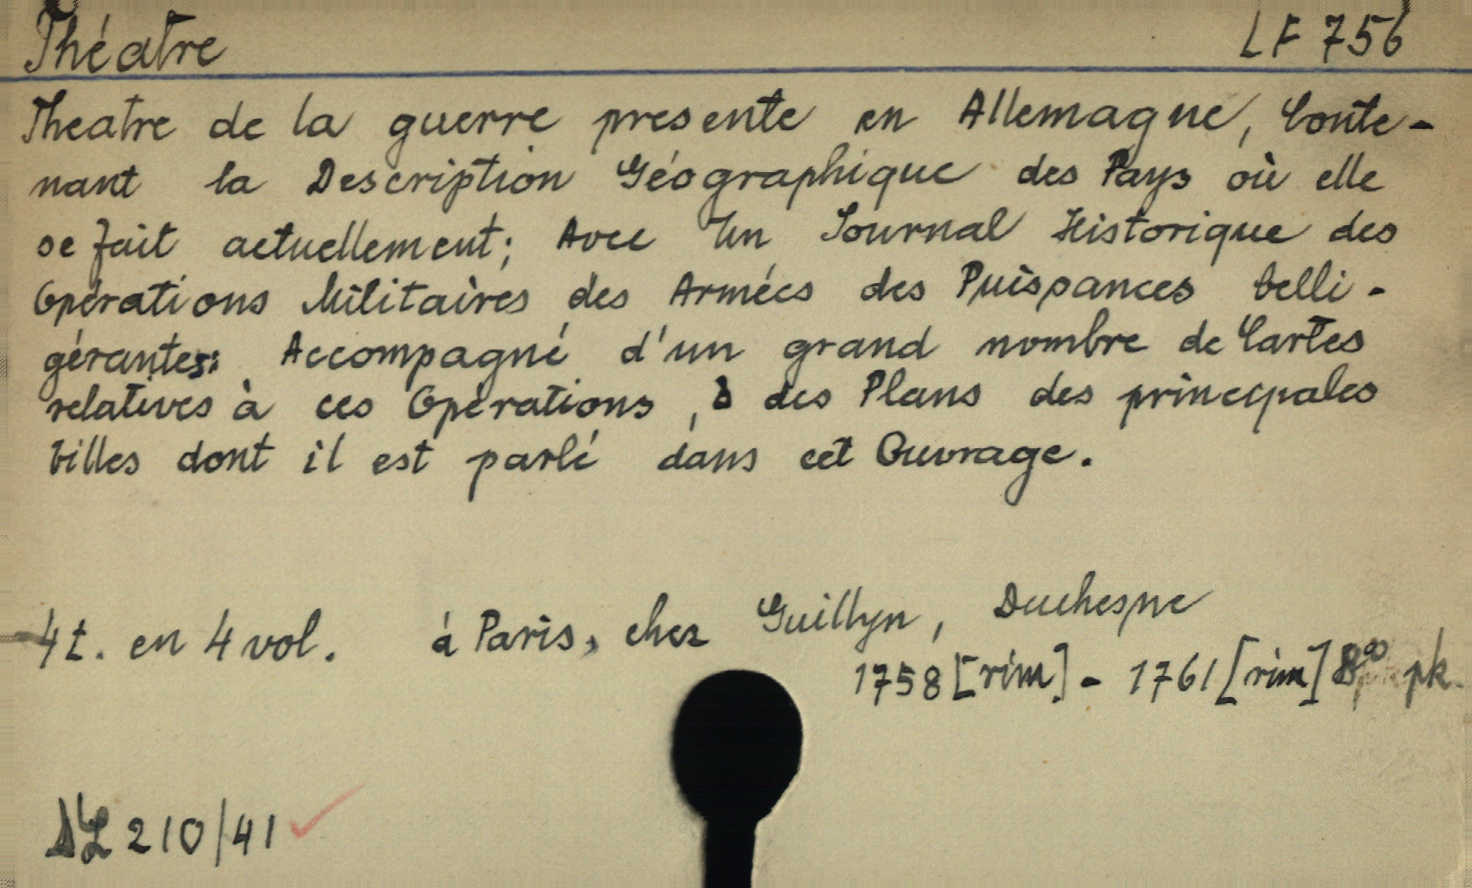 Théatre LF 756
Theatre de la guerre presente en Allemagne, Conte-
nant la Description Géographique des Pays où elle
se fait actuellement; Avec Un Journal Historique des
Opérations Militaires des Armées des Puissances belli-
gérantes: Accompagné d'un grand nombre de Cartes
relatives à ces Opérations, & des Plans des principales
Villes dont il est parlé dans cet Ouvrage.
4 t. en 4 vol. á Paris, chez Guillyn, Duchesne
1758 [rím] - 1761 [rím] 8° pk.
DL 210/41